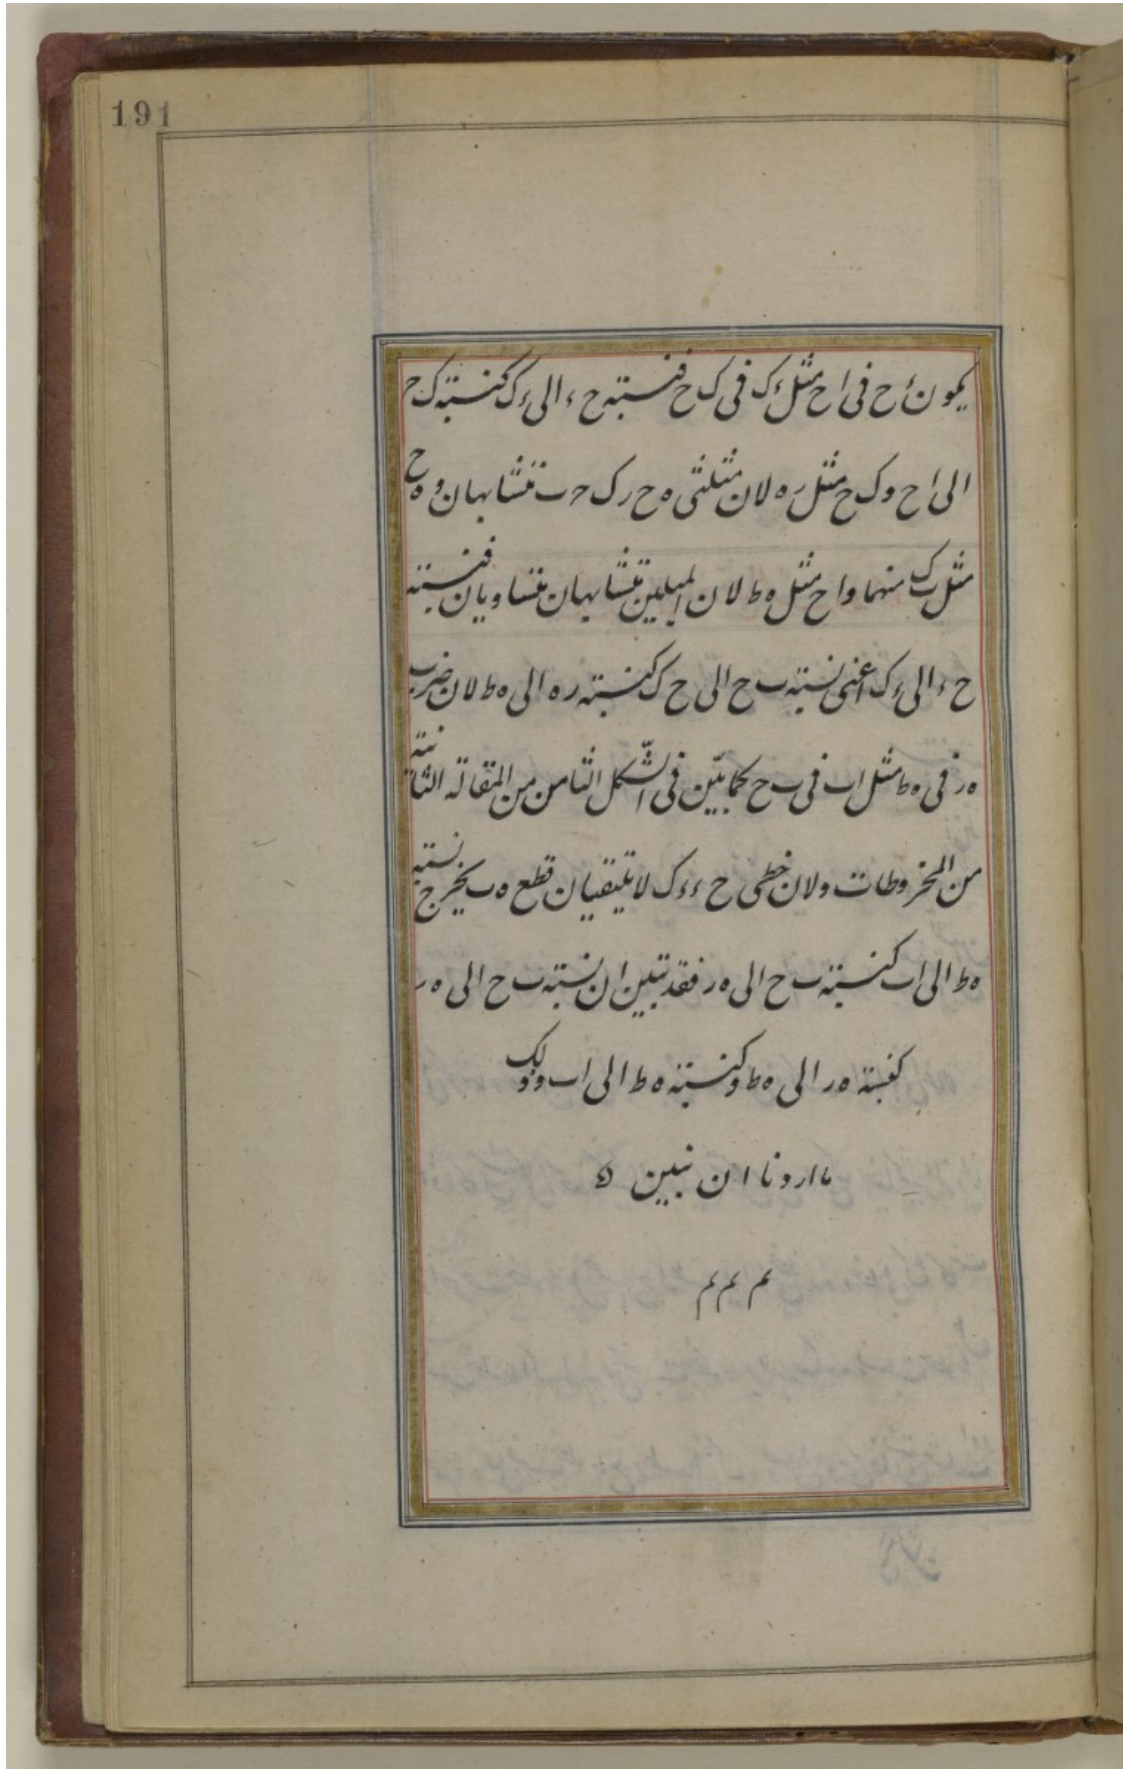 191
يكون ءح فى اح مثل ءك فى ك ح فنسبته ح ء الى ءك كنسبته ك ح
الى اح و ك ح مثل ره لان مثلثى ه ح ر ك ح ب متشابهان و ه ح
مثل ك ب منهما و اح مثل ه ط لان المثلثين متشابهان متساويان فنسبته
ح ء الى ءك اعنى نسبته ب ح الى ح ك كنسبته ر ه الى ه ط لان ضرب
ه ر فى ه ط مثل اب فى ب ح كما بيّن فى الشّكل الثامن من المقالة الثانية
من المخروطات ولان خطى ح ء ءك لا يلتقيان قطع ه ب يخرج نسبته
ه ط الى اب كنسبته ب ح الى ه ر فقد تبين ان نسبته ب ح الى ه ر
كنسبته ه ر الى ه ط و كنسبته ه ط الى اب و ذلك
ما اردنا ان نبين ه
م م م